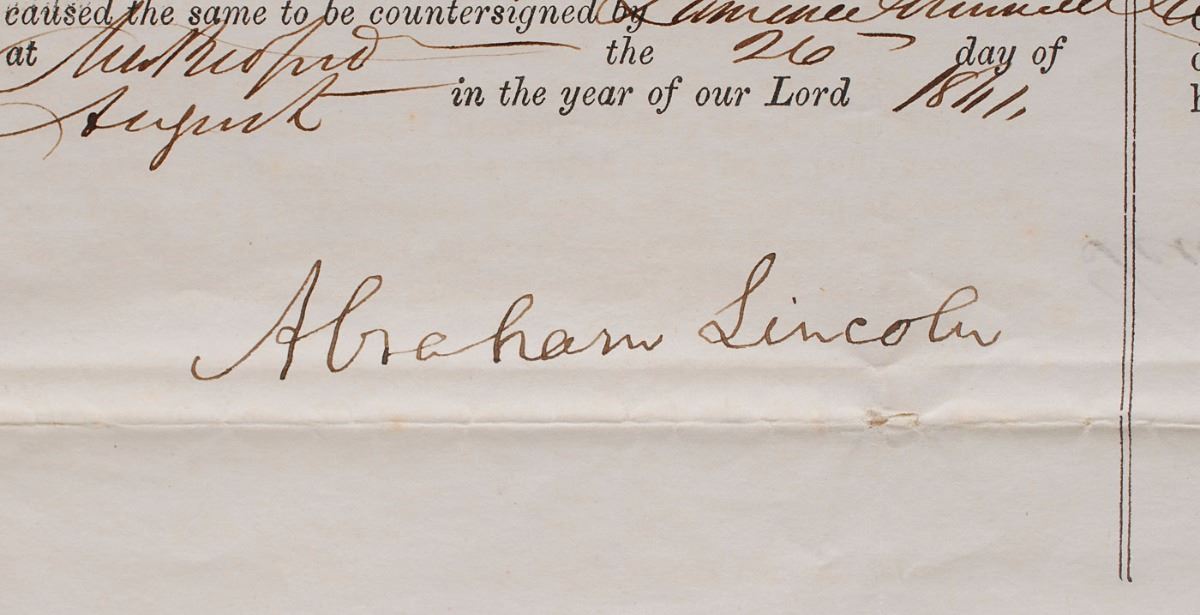 caused the same to be countersigned by
at New Bedford the 26 day of
August in the year of our Lord
Abraham Lincoln